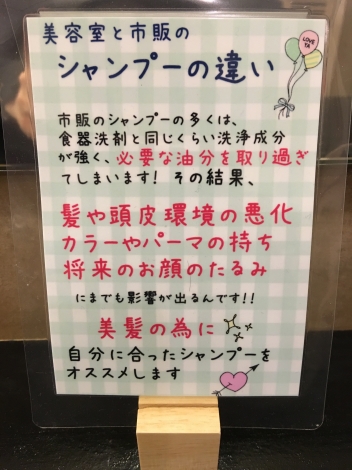 美容室と市販の
シャンプーの違い
LOVE YA
市販のシャンプーの多くは、
食器洗剤と同じくらい洗浄成分
が強く、必要な油分を取り過ぎ
てしまいます! その結果、
髪や頭皮環境の悪化
カラーやパーマの持ち
将来のお顔のたるみ
にまでも影響が出るんです!!
美髪の為に
自分に合ったシャンプーを
オススメします